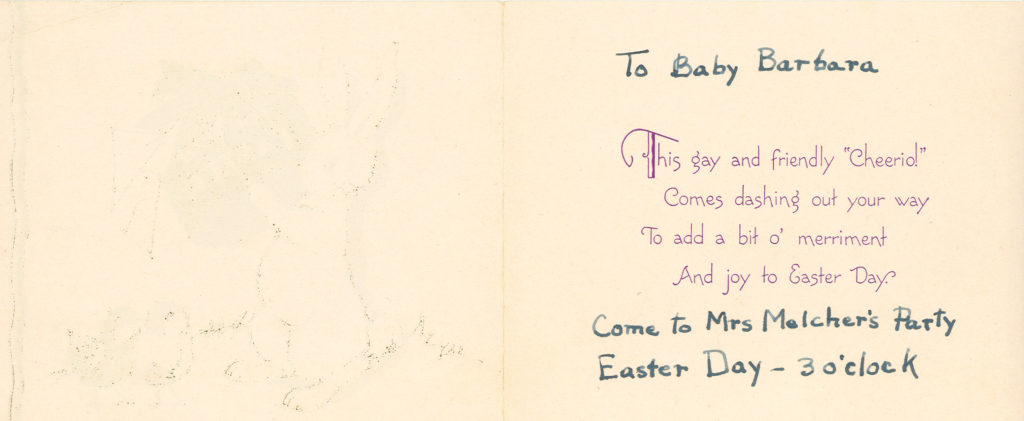 To Baby Barbara
This gay and friendly "Cheerio!"
Comes dashing out your way
To add a bit o' merriment
And joy to Easter Day.
Come to Mrs Melcher's Party
Easter Day - 3 o'clock